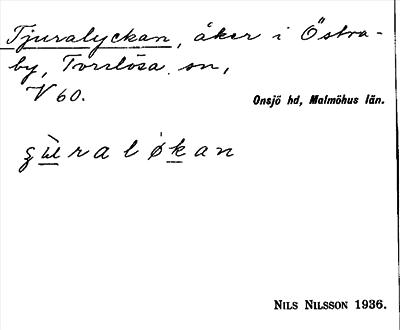 Tjuralyckan, åker i Östra-
by, Torrlösa sn,
V 60.
Onsjö hd, Malmöhus län.
NILS NILSSON 1936.